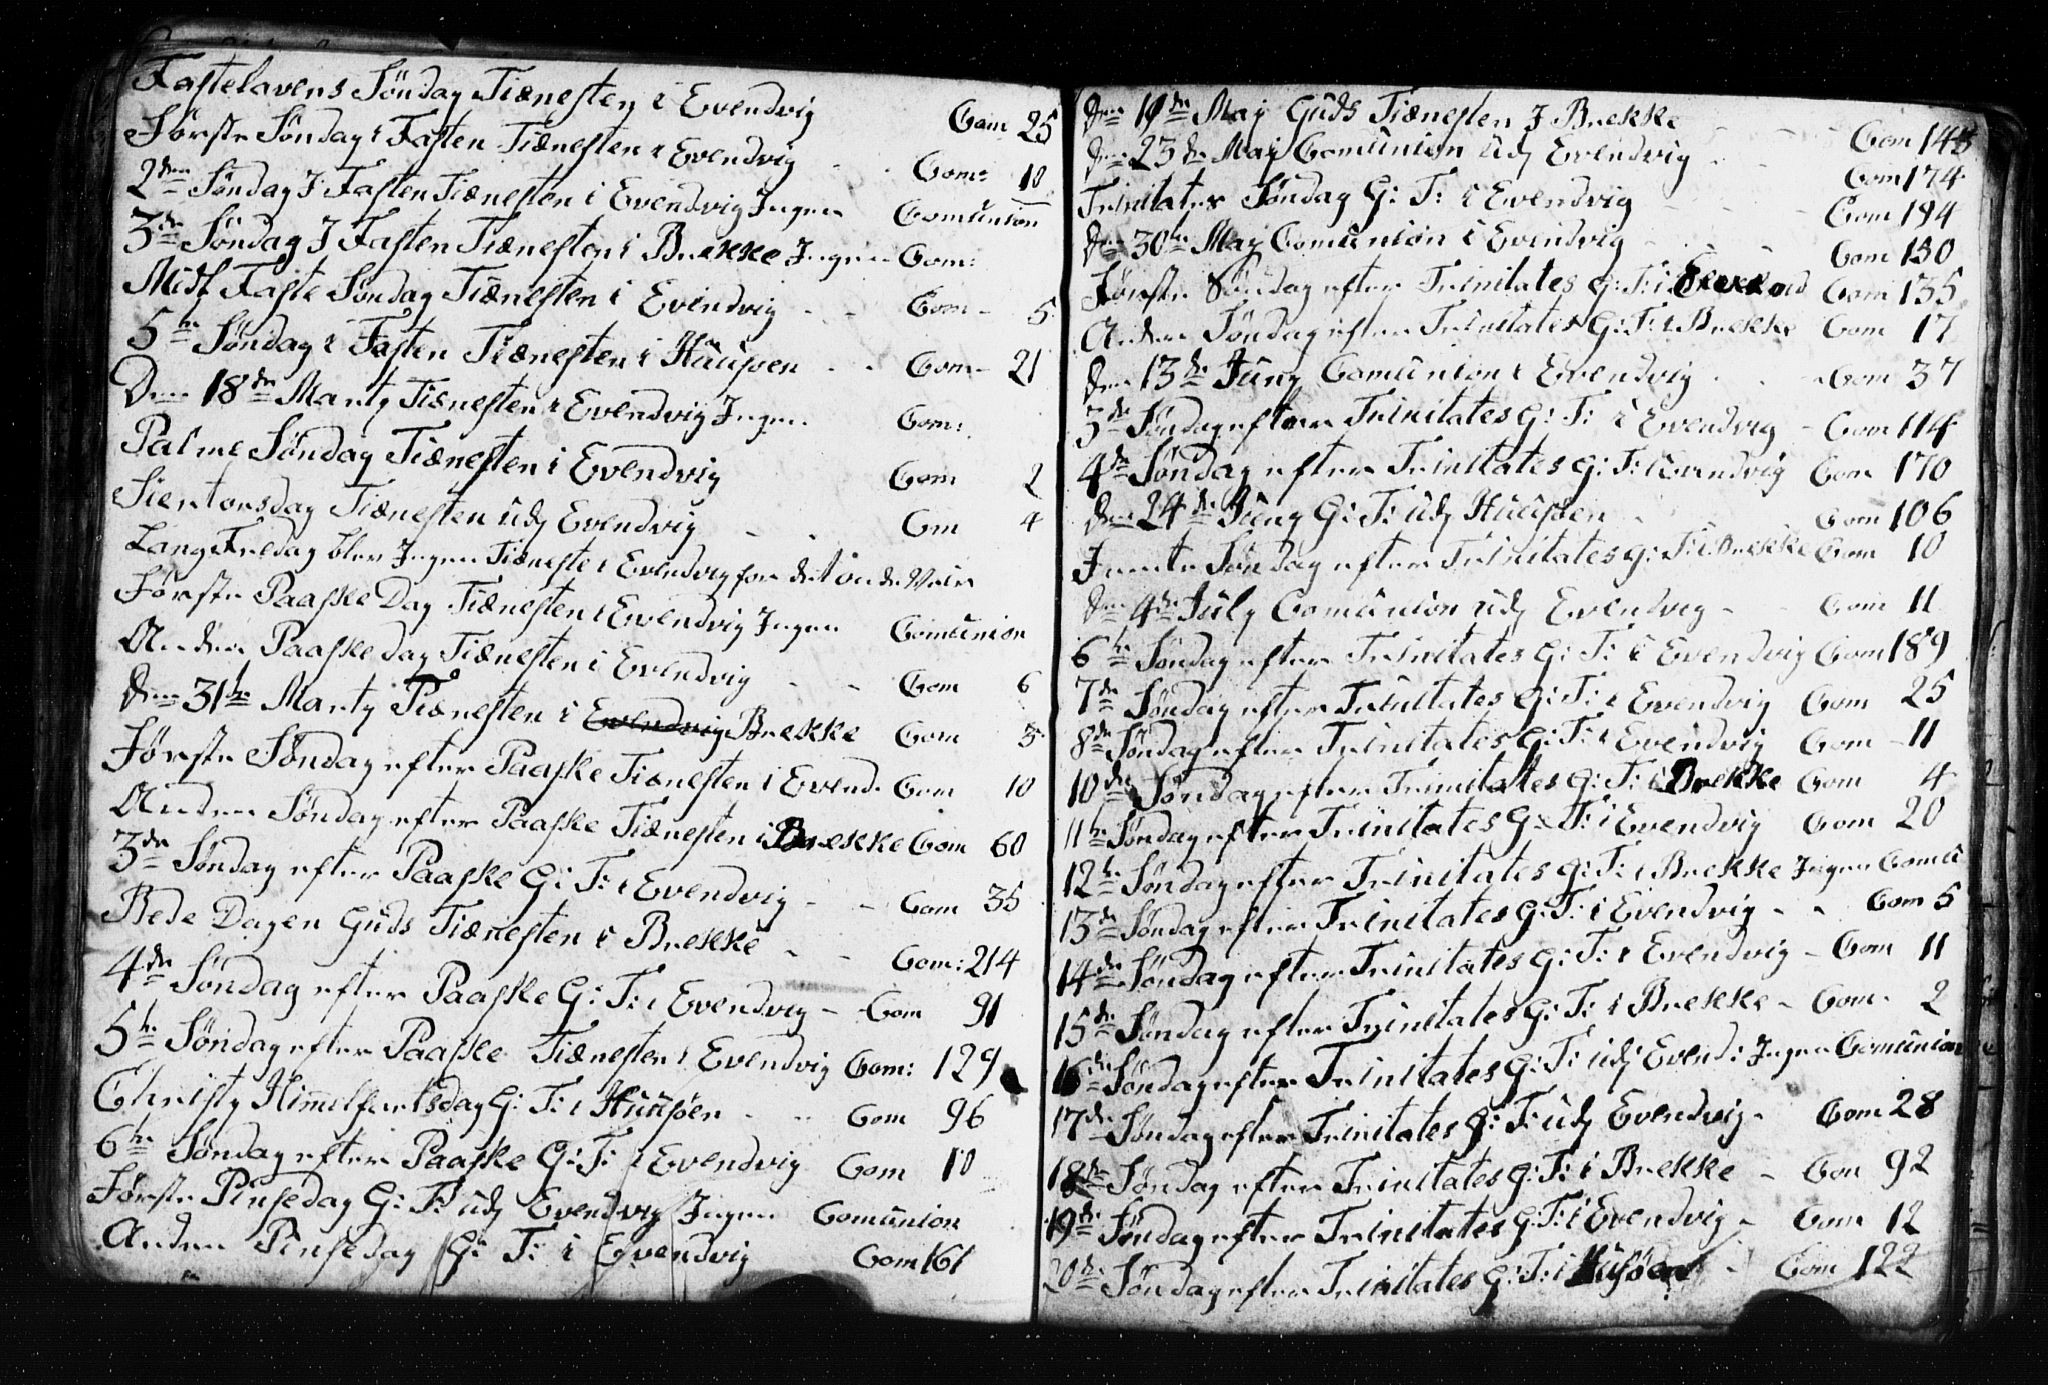 Fastelavens Søndag Tienesten i Evendvig Com 25
Første Søndag i Fasten Tienesten i Evendvig - Com: 10
2den Søndag I Fasten Tienesten i Evendvig Ingen Comunion
3de Søndag I Fasten Tienesten i Brekke Ingen Com:
Midt Faste Søndag Tienesten i Evendvig - - Com - 5
5te Søndag i Fasten Tienesten i Huusøen - - Com - 21
Den 18de Marty Tienesten i Evendvig Ingen Com:
Palme Søndag Tienesten i Evendvig Com 2
Skiertorsdag Tienesten udj Evendvig - - Cm 4
Lang Fredag blev Ingen Tieneste i Evendvig for det onde Veir
Første Paaske Dag Tienesten i Evendvig Ingen Comunion
Anden Paaske dag Tienesten i Evendvig - - Com 6
Den 31te Marty Tienesten i Evendvig Brekke Com 3
Første Søndag efter Paaske Tienesten i Evend. Com 10
Anden Søndag efter Paaske Tienesten i Brekke Com 60
3de Søndag efter Paaske G: T: i Evendvig - - Com 35
Bede Dagen Guds Tienesten i Brekke - - Com: 214
4de Søndag efter Paaske G: T: i Evendvig - Com 91
5te Søndag efter Paaske Tienesten i Evendvig Com: 129
Christy Himmelfartsdag G: T: i Huusøen - - Com 96
6te Søndag efter Paaske G: T: i Evendvig Com 10
Første Pinsedag G: T: udj Evendvig Ingen Comunion
Anden Pinsedag G: T: i Evendvig Com 161
Den 19de May Guds Tienesten I Brekke - - - Com 143
Den 23de May Comunion udj Evendvig - - Com 174
Trinitates Søndag G: T: i Evendvig - - Com 194
Den 30te May Comunion i Evendvig - - Com 130
Første Søndag efter Trinitates G: T: i Com 135
Anden Søndag efter Trinitates G: T: i Brekke Com 17
Den 13de Juny Comunion i Evendvig - - Com 37
3de Søndag efter Trinitates G: T: i Evendvig - Com 114
4de Søndag efter Trinitates G: T: i Evendvig Com 170
Den 24de Juny G: T: udj Huusøen - Com 106
Femte Søndag efter Trinitates G: T: i Brekke Com 10
Den 4de July Comunion udj Evendvig - - Com 11
6te Søndag efter Trinitates G: T: i Evendvig Com 189
7de Søndag efter Trinitates G: T: i Evendvig Com 25
8de Søndag efter Trinitates G: T: i Evendvig Com - 11
10de Søndag efter Trinitates G: T: i Brekke Com 4
11te Søndag efter Trinitates G: T: i Evendvig Com 20
12te Søndag efter Trinitates G: T: i Brekke Ingen Comu
13de Søndag efter Trinitates G: T: i Evendvig - - Com 5
14de Søndag efter Trinitates G: T: i Evendvig - Com 11
15de Søndag efter Trinitates G: T: i Brekke - Com - 2
16de Søndag efter Trinitates G: T: udj Evend: Ingen Comunion
17de Søndag efter Trinitates G: T: udj Evendvig - Com 28
18de Søndag efter Trinitates G: T: i Brekke - Com 92
19de Søndag efter Trinitates G: T: i Evendvig - Com 12
20de Søndag efter Trinitates G: T: i Husøen - Com 122